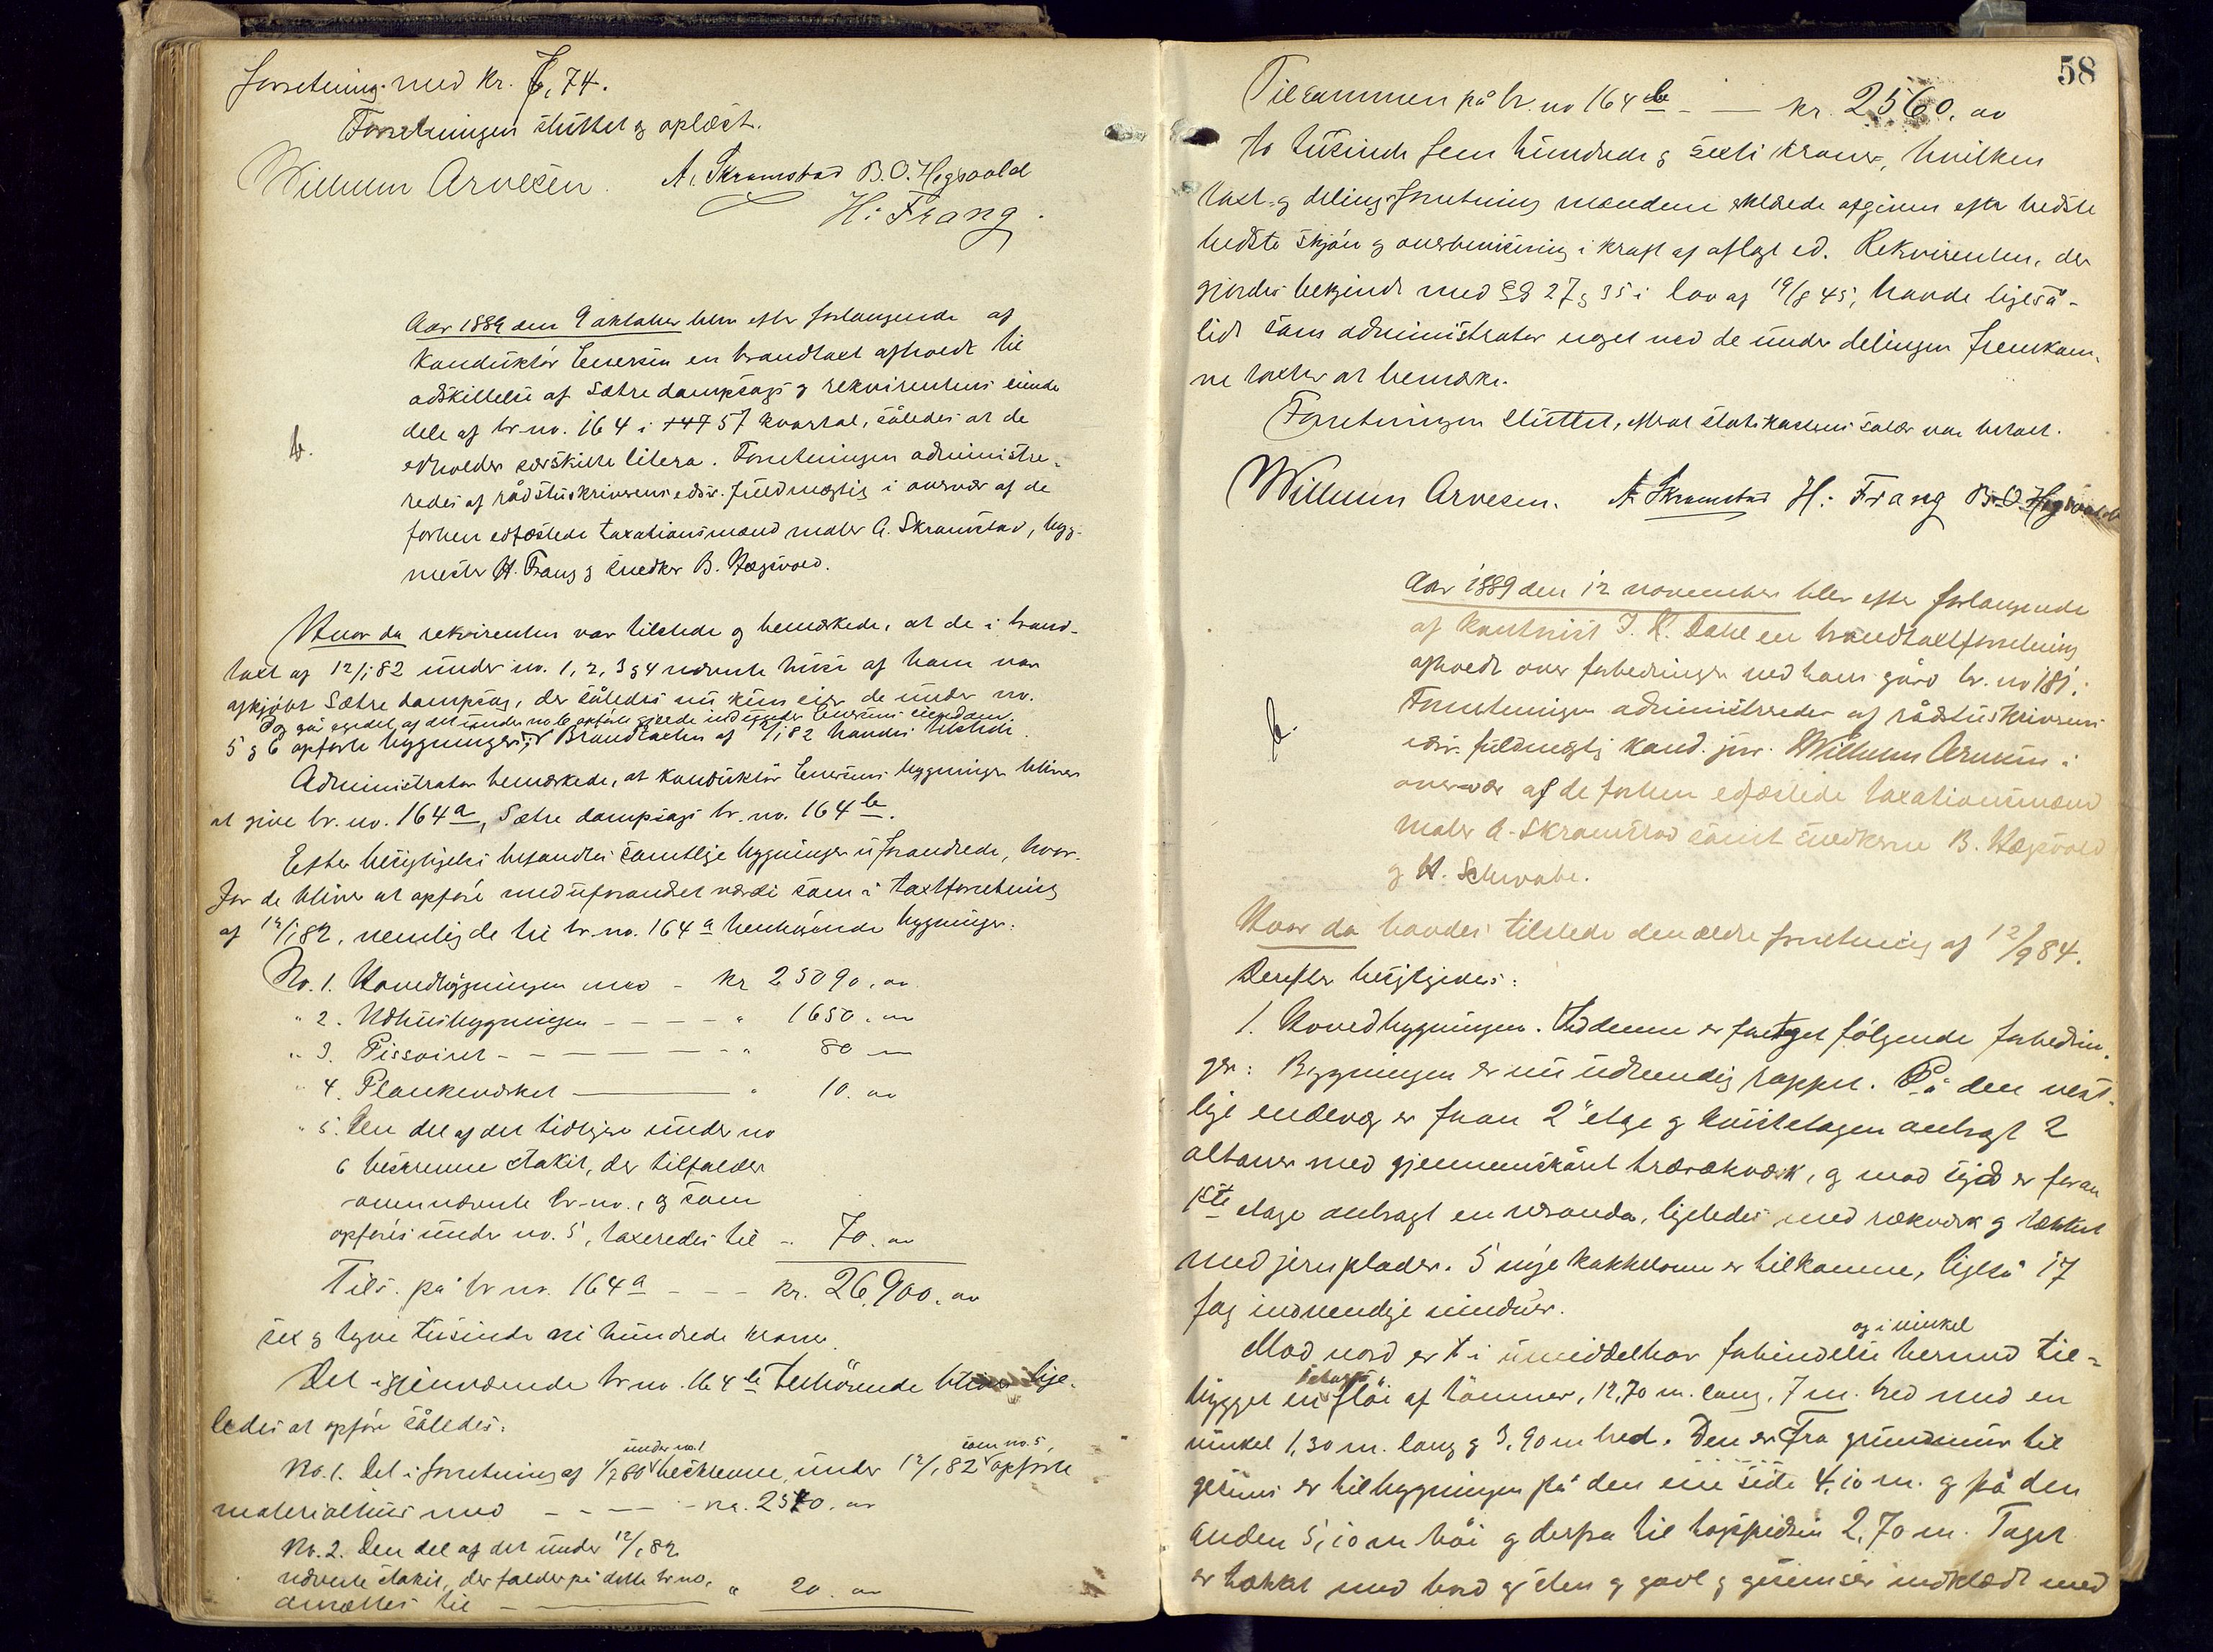 forretning med kr. 6,74.
Forretningen sluttet og oplæst.
Wilhelm Arnesen. A. Skramstad B. O. Hegsvold
H. Frang.
Aar 1889 den 9 oktober blev efter forlangende af
konduktør Enersen en brandtaxt afholdt til
adskillelse af Sætre dampsags og rekvirentens eiendele
dele af br. no. 164 i 147 57 kvartal, således at de
erholder særskilte litera. Forretningen administre-
redes af rådstuskriverens edsv. fuldmægtig i overvær af de
forhen edfæstede taxationsmænd maler A. Skramstad, byg-
mester H. Frang og snedker B. Hegsvold.
b.
Hvor da rekvirenten var tilstede og bemærkede, at de i brand-
taxt af 12/1 82 under no. 1, 2, 3 og 4 nævnte huse af ham var
afkjøbt Sætre dampsag, der således nu kun eier de under no.
Dog går endel af det under no 6 opførte gjerde ind under Enersens eiendom.
5 og 6 opførte bygninger. Brandtaxten af 12/1 82 havdes tilstede.
Administrator bemærkede, at konduktør Enersens bygninger bliver
at give br. no. 164 a, Sætre dampsags br. no. 164 b.
Efter besigtigelse befandtes samtlige bygninger uforandrede, hvor-
for de bliver at opføre med uforandret værdi som i taxtforretning
af 12/1 82, nemlig de til br. no. 164 a henhørende bygninger:
No. 1. Hovedbygningen med - kr 25090, 00
" 2. Udhusbygningen - - - - " 1650. 00
" 3. Pissoiret - - - - - " 80 00
" 4. Plankeværket - " 10. 00
" 5. Den del af det tidligere under no
6 beskrevne stakit, der tilfalder
ovennævnte br. no., og som
opføres under no. 5, taxeredes til - 70. 00
Tils. på br no. 164 a - - - kr. 26,900. 00
sex og tyve tusinde ni hundrede kroner.
Det igjenværende br no. 164 b tilhørende bliver lige-
ledes at opføre således:
under no. 1 som no. 5,
No. 1. Det i forretning af 1/7 80 beskrevne, under 12/1 82 opførte
materialhus med - - - - kr. 2540. 00
No. 2. Den del af det under 12/1 82
nævnte stakit, der falder på dette br no.
ansættes til - " 20. 00
58
Tilsammen på br. no 164 b - - kr. 2560. 00
to tusinde fem hundrede og sexti kroner, hvilken
taxt- og delingsforretning mændene erklærede afgiven efter bedste
bedste skjøn og overbevisning i kraft af aflagt ed. Rekvirenten, der
gjordes bekjendt med §§ 27 og 35 i lov af 19/8 45, havde ligeså-
lidt som administrator noget ved de under delingen fremkom-
ne taxter at bemærke.
Forretningen sluttet, efterat statskassens salær var betalt.
Wilhelm Arnesen. A. Skramstad H. Frang B. O. Hegsvold
Aar 1889 den 12 november blev efter forlangende
af kontorist J. K. Dahl en brandtaxtforretning
afholdt over forbedringer ved hans gård br. no 181.
Forretningen administreredes af rådstuskriverens
edsv. fuldmægtig kand. jur. Wilhelm Arnesen i
overvær af de forhen edfæstede taxationsmænd
maler A. Skramstad samt snedkerne B. Hegsvold
og H. Schwabe.
b.
Hvor da havdes tilstede den ældre forretning af 12/9 84.
Derefter besigtigedes:
1. Hovedbygningen. Ved denne er foretaget følgende forbedrin-
ger: Bygningen er nu udvendig rappet. På den vest-
lige endevæg er foran 2den etage og kvistetagen anbragt 2
altaner med gjennemskåret trærækværk, og mod syd er foran
1ste etage anbragt en veranda, ligeledes med rækværk og tækket
med jernplader. 5 nye kakkelovne er tilkomne, ligeså 17
fag indvendige vinduer.
og i vinkel
Mod nord er i umiddelbar forbindelse hermed til-
bygget en etages fløi af tømmer, 12,70 m. lang, 7 m. bred med en
vinkel 1,30 m. lang og 3,90 m bred. Den er Fra grundmur til
gesims er tilbygningen på den ene side 4,10 m. og på den
anden 5,10 m høi og derfra til tagspidsen 2,70 m. Taget
er tækket med bord og sten og gavl og gesimser indklædt med